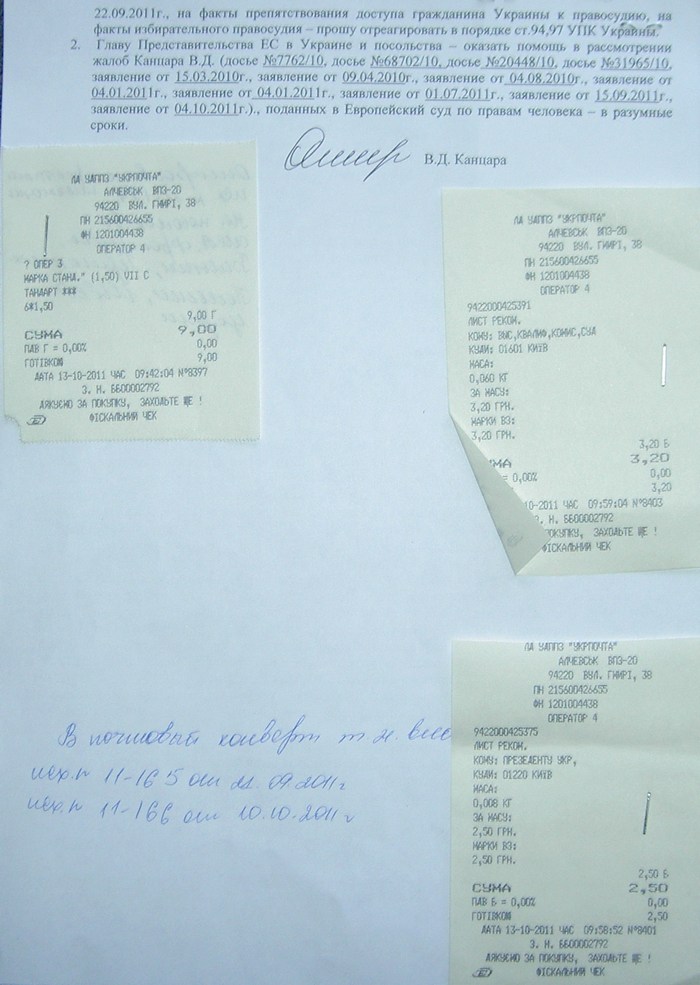 22.09.2011г., на факты препятствования доступа гражданина Украины к правосудию, на
факты избирательного правосудия – прошу отреагировать в порядке ст.94,97 УПК Украины.
2. Главу Представительства ЕС в Украине и посольства – оказать помощь в рассмотрении
жалоб Канцара В.Д. (досье №7762/10, досье №68702/10, досье №20448/10, досье №31965/10,
заявление от 15.03.2010г., заявление от 09.04.2010г., заявление от 04.08.2010г., заявление от
04.01.2011г., заявление от 04.01.2011г., заявление от 01.07.2011г., заявление от 15.09.2011г.,
заявление от 04.10.2011г.)., поданных в Европейский суд по правам человека – в разумные
сроки.
В.Д. Канцара
ЛА УАППЗ "УКРПОЧТА"
АЛЧЕВСЬК ВПЗ-20
94220 ВУЛ. ГМИРІ, 38
ПН 215600426655
ФН 1201004438
ОПЕРАТОР 4
? ОПЕР 3
МАРКА СТАНД." (1,50) VII С
ТАНДАРТ ***
6*1,50
9,00 Г
СУМА 9,00
ПДВ Г = 0,00% 0,00
ГОТІВКОЮ 9,00
ДАТА 13-10-2011 ЧАС 09:42:04 №8397
З. Н. ББ00002792
ДЯКУЄМО ЗА ПОКУПКУ, ЗАХОДЬТЕ ЩЕ !
ФІСКАЛЬНИЙ ЧЕК
ЛА УАППЗ "УКРПОЧТА"
АЛЧЕВСЬК ВПЗ-20
94220 ВУЛ. ГМИРІ, 38
ПН 215600426655
ФН 1201004438
ОПЕРАТОР 4
9422000425391
ЛИСТ РЕКОМ.
КОМУ: ВИС,КВАЛИФ,КОМИС,СУД
КУДИ: 01601 КИЇВ
МАСА:
0,060 КГ
ЗА МАСУ:
3,20 ГРН.
МАРКИ ВЗ:
3,20 ГРН.
3,20 Б
МА 3,20
= 0,00% 0,00
3,20
10-2011 ЧАС 09:59:04 №8403
З. Н. ББ00002792
ПОКУПКУ, ЗАХОДЬТЕ ЩЕ !
ФІСКАЛЬНИЙ ЧЕК
В почтовый конверт
исх.№ 11-165 от 22.09.2011г
исх.№ 11-166 от 10.10.2011г
ЛА УАППЗ "УКРПОЧТА"
АЛЧЕВСЬК ВПЗ-20
94220 ВУЛ. ГМИРІ, 38
ПН 215600426655
ФН 1201004438
ОПЕРАТОР 4
9422000425375
ЛИСТ РЕКОМ.
КОМУ: ПРЕЗЕДЕНТУ УКР,
КУДИ: 01220 КИЇВ
МАСА:
0,008 КГ
ЗА МАСУ:
2,50 ГРН.
МАРКИ ВЗ:
2,50 ГРН.
2,50 Б
СУМА 2,50
ПДВ Б = 0,00% 0,00
ГОТІВКОЮ 2,50
ДАТА 13-10-2011 ЧАС 09:58:52 №8401
З. Н. ББ00002792
ДЯКУЄМО ЗА ПОКУПКУ, ЗАХОДЬТЕ ЩЕ !
ФІСКАЛЬНИЙ ЧЕК